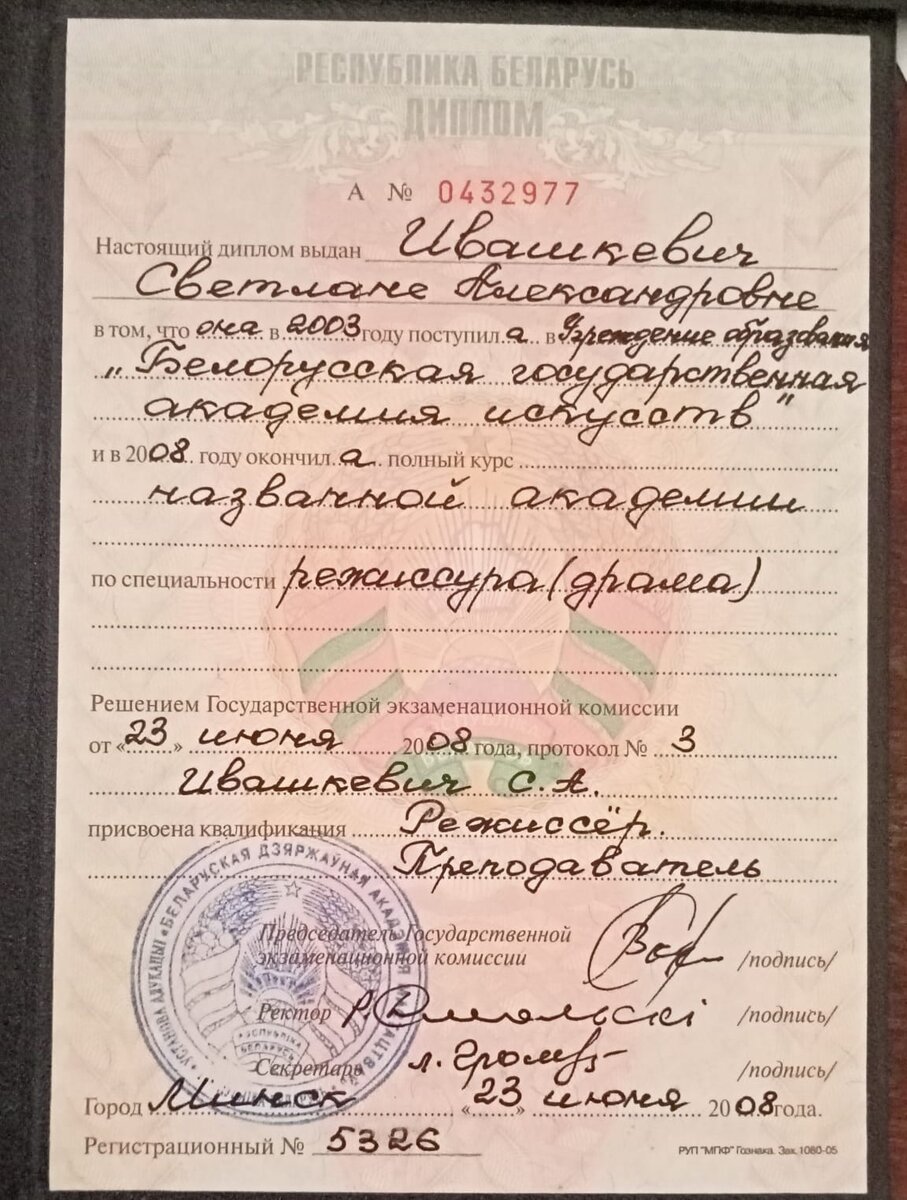 РЕСПУБЛИКА БЕЛАРУСЬ
ДИПЛОМ
А № 0432977
Настоящий диплом выдан Ивашкевич
Светлане Александровне
в том, что она в 2003 году поступила в Учреждение образования
„Белорусская государственная
академия искусств"
и в 2008 году окончила полный курс
названной академии
по специальности режиссура (драма)
Решением Государственной экзаменационной комиссии
от «23» июня 2008 года, протокол № 3
Ивашкевич С.А.
присвоена квалификация Режиссёр.
Преподаватель
УСТАНОВА АДУКАЦЫІ «БЕЛАРУСКАЯ ДЗЯРЖАЎНАЯ АКАДЭМІЯ МАСТАЦТВАЎ»
РЭСПУБЛІКА БЕЛАРУСЬ
Председатель Государственной
экзаменационной комиссии /подпись/
Ректор Р. Смольскі /подпись/
Секретарь /подпись/
Город Минск «23» июня 2008 года.
Регистрационный № 5326
РУП "МПФ" Гознака. Зак. 1080-05